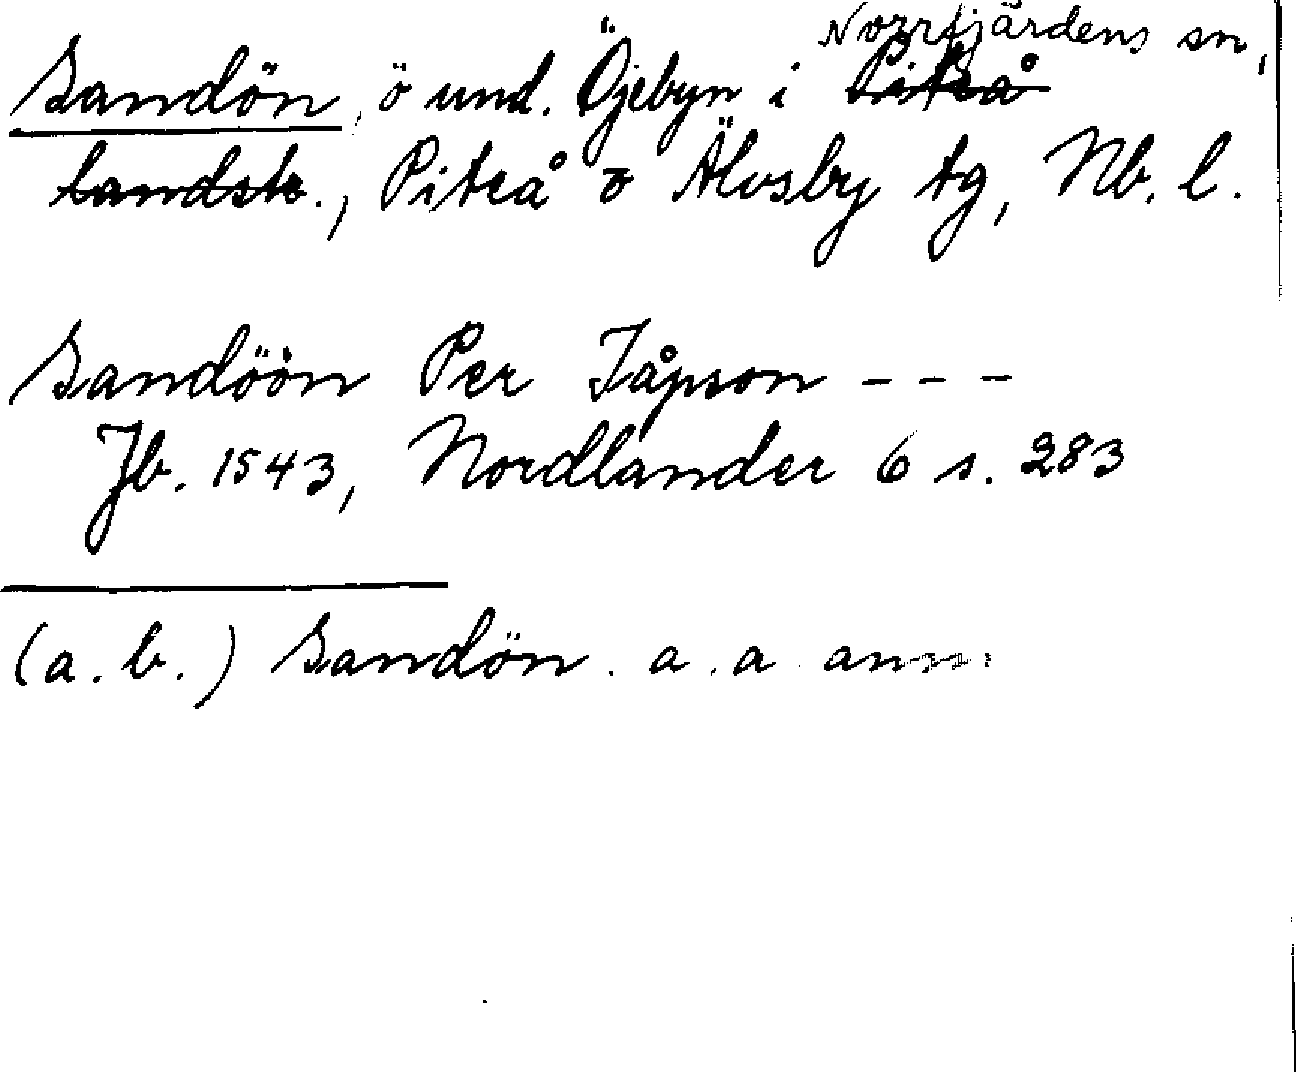 Norrfjärdens sn,
Sandön, ö und. Öjebyn i Piteå
landsk., Piteå o Älvsby tg, Nb. l.
Sandöön Per Jåpson - - -
Jb. 1543, Nordlander 6 s. 283
(a. b.) Sandön. a. a. anm.